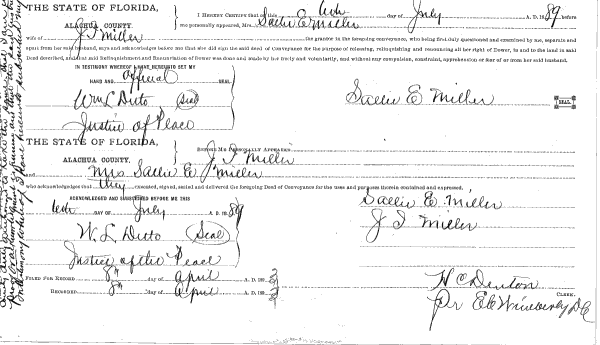 THE STATE OF FLORIDA,
ALACHUA COUNTY.
I HEREBY CERTIFY that on this 16th day of July A. D. 1889, before
me personally appeared, Mrs. Sallie E Miller
wife of J I Miller the grantee in the foregoing conveyance, who being first duly questioned and examined by me, separate and
apart from her said husband, says and acknowledges before me that she did sign the said deed of Conveyance for the purpose of releasing, relinquishing and renouncing all her right of Dower, in and to the land in said
Deed described, and that said Relinquishment and Renunciation of Dower was done and made by her freely and voluntarily, and without any compulsion, constraint, apprehension or fear of or from her said husband.
IN TESTIMONY WHEREOF I HAVE HEREUNTO SET MY
HAND AND official SEAL
Wm L Ditto (Seal)
Justice of Peace
Sallie E Miller SEAL.
THE STATE OF FLORIDA,
ALACHUA COUNTY.
BEFORE ME PERSONALLY APPEARED J I Miller
and Mrs Sallie E Miller
who acknowledges that they executed, signed, sealed and delivered the foregoing Deed of Conveyance for the uses and purposes therein contained and expressed.
ACKNOWLEDGED AND SUBSCRIBED BEFORE ME THIS
16th DAY OF July A. D. 1889
W. L. Ditto (Seal)
Justice of the Peace
Sallie E. Miller
J I Miller
FILED FOR RECORD 8th day of April A. D. 189
RECORDED 8th day of April A. D. 189
H C Denton CLERK.
Pr E C Wimberly D C